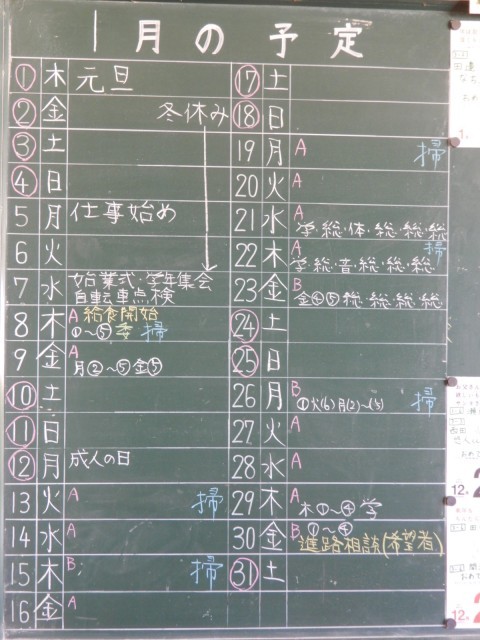 1月の予定
① 木 元旦
② 金 冬休み
③ 土
④ 日
5 月 仕事始め
6 火
7 水 始業式・学年集会
自転車点検
8 木 A 給食開始
①～⑤ 委 掃
9 金 A
月②～⑤金⑤
⑩ 土
⑪ 日
⑫ 月 成人の日
13 火 A 掃
14 水 A
15 木 B 掃
16 金 A
⑰ 土
⑱ 日
19 月 A 掃
20 火 A
21 水 A
学・総・体・総・総・総
22 木 A 掃
学・総・音・総・総・総
23 金 B
金④⑤総・総・総・総
㉔ 土
㉕ 日
26 月 B
①火(6)月(2)～(5) 掃
27 火 A
28 水 A
29 木 A
木①～④学
30 金 B ①～④
進路相談(希望者)
㉛ 土
12月
12月